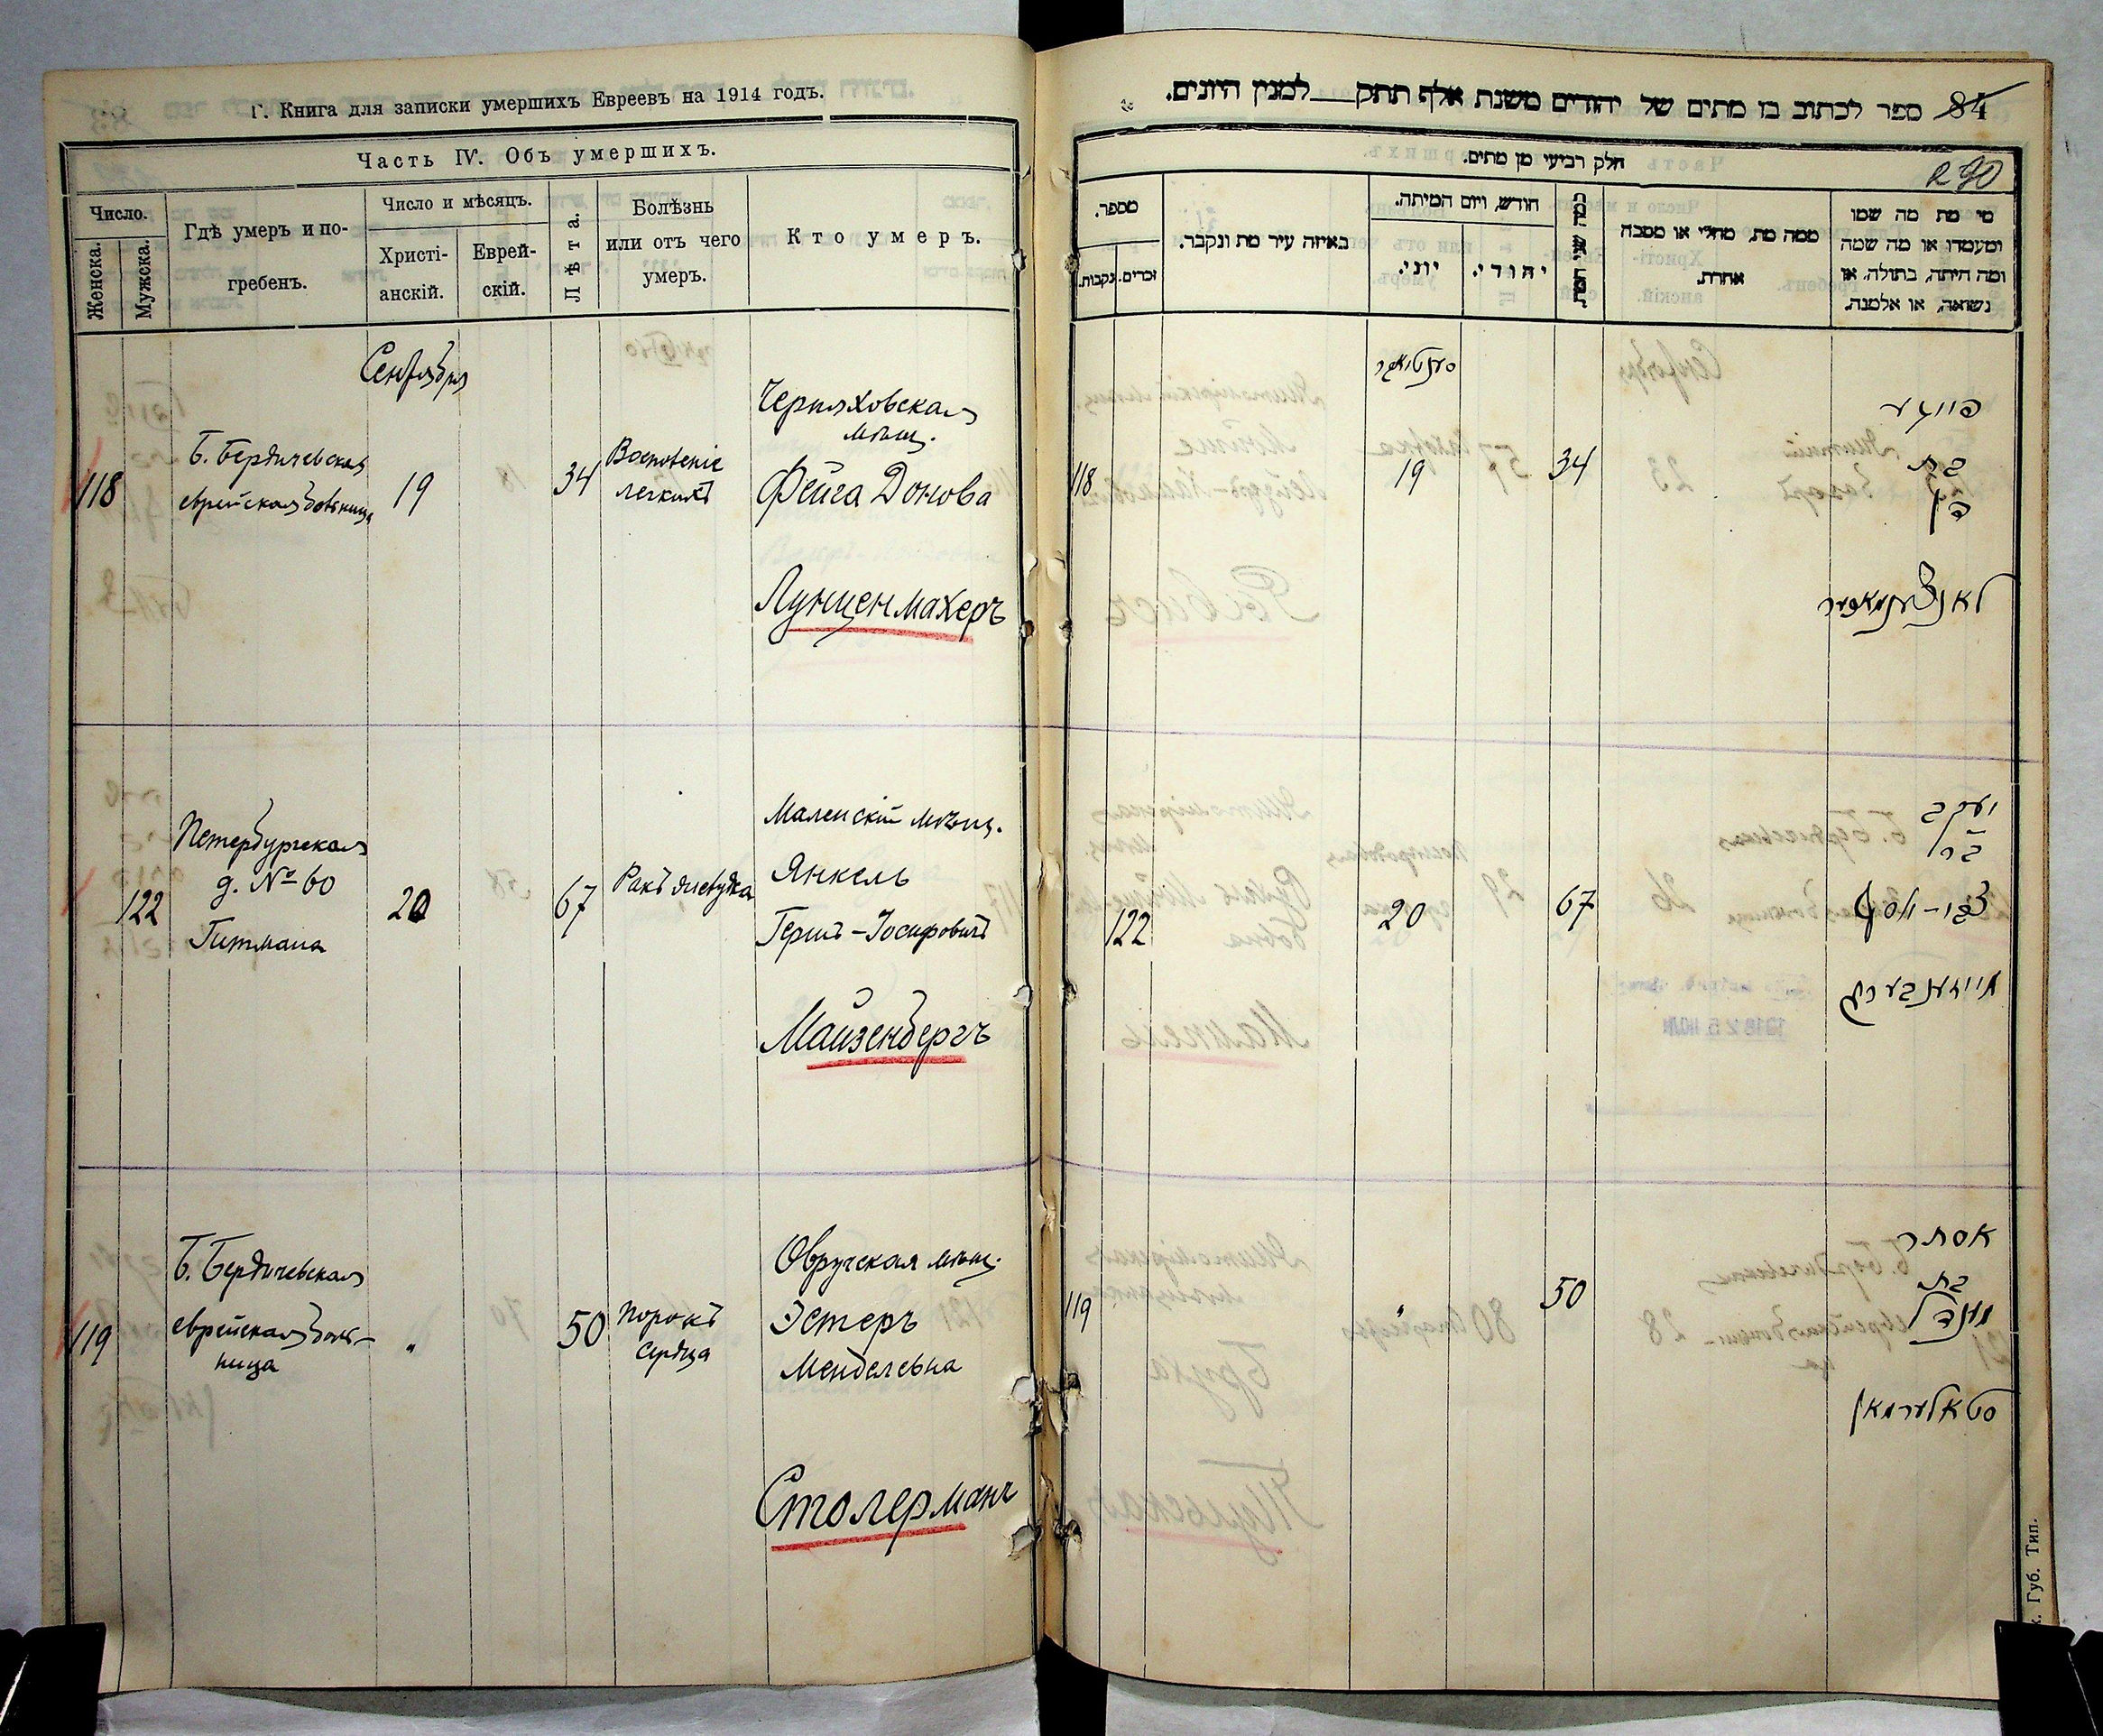 Г. Книга для записки умершихъ Евреевъ на 1914 годъ.
Часть IV. Объ умершихъ.
Число.
Женска.
Мужска.
Гдѣ умеръ и по-
гребенъ.
Число и мѣсяцъ.
Христі-
анскій.
Еврей-
скій.
Лѣта.
Болѣзнь
или отъ чего
умеръ.
Кто умеръ.
Сентября
118
Б. Бердичевская
еврейская больница
19
34
Воспаленіе
легкихъ
Черняховская
мѣщ.
Фейга Донова
Лунценмахеръ
122
Петербургская
д. № 60
Гитмана
20
67
Ракъ желудка
мѣщ.
Янкель
Гершъ-Іосифовичъ
Майзенбергъ
119
Б. Бердичевская
еврейская боль-
ница
"
50
Порокъ
сердца
Овручская мѣщ.
Эстеръ
Менделевна
Столерманъ
84
ספר לכתוב בו מתים של יהודים משנת אלף תתק למנין היונים.
חלק רביעי מן מתים.
290
מספר.
נקבות.
זכרים.
באיזה עיר מת ונקבר.
חודש, ויום המיתה.
יוני.
יהודי.
כמה שני המת.
ממה מת, מחלי או מסבה
אחרת.
מי מת מה שמו
ומעמדו או מה שמה
ומה היתה, בתולה, או
נשואה, או אלמנה.
סענטיאבר
118
19
34
פייגע
בת
דן
לאנצענמאכער
122
20
67
יעקב
בר
צבי-יוסף
מייזענבערג
119
"
50
אסתר
בת
מענדל
סטאלערמאן
Губ. Тип.